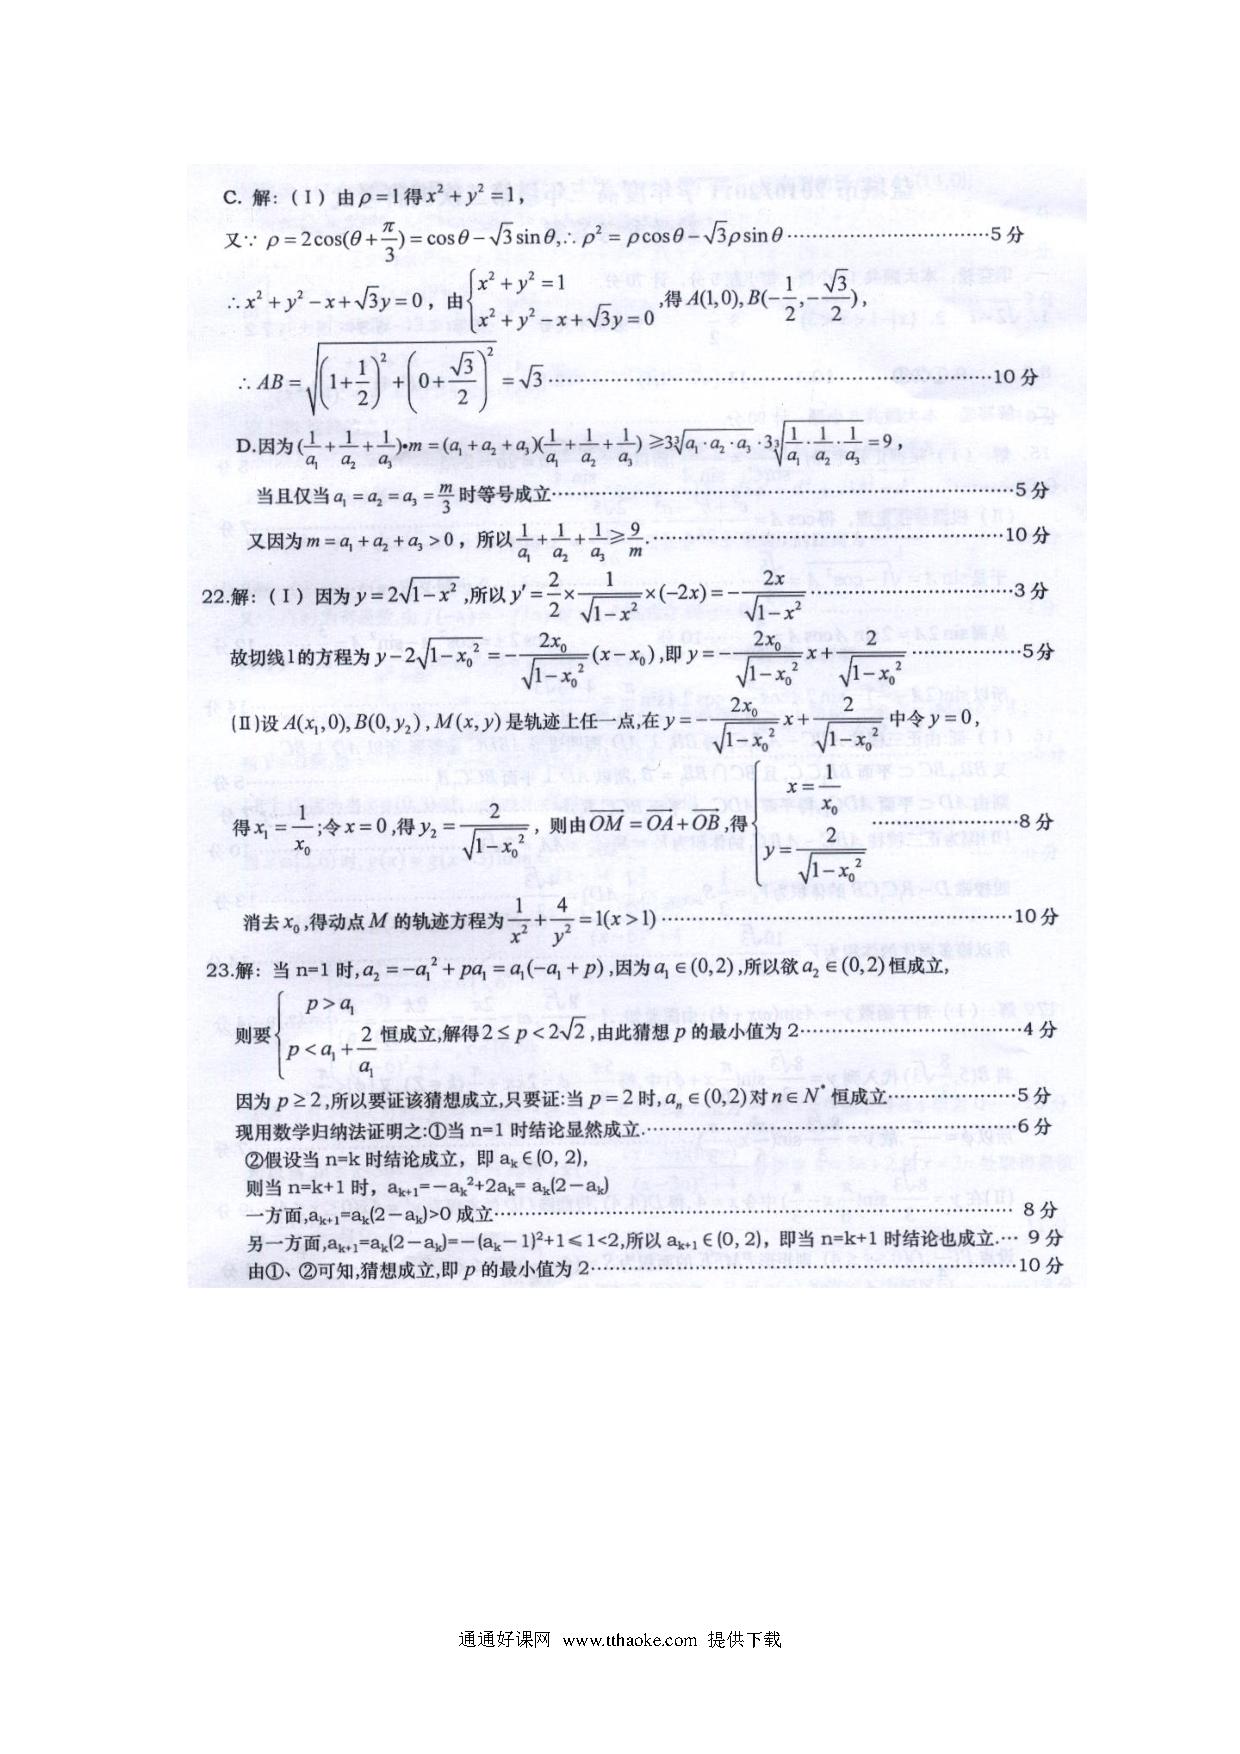 C. 解:(Ⅰ)由ρ=1得x²+y²=1,
又∵ ρ=2cos(θ+π/3)=cosθ-√3sinθ,∴ρ²=ρcosθ-√3ρsinθ……………………………5分
∴x²+y²-x+√3y=0,由{x²+y²=1 x²+y²-x+√3y=0,得A(1,0),B(-1/2,-√3/2),
∴AB=√((1+1/2)²+(0+√3/2)²)=√3……………………………10分
D.因为(1/a₁+1/a₂+1/a₃)•m=(a₁+a₂+a₃)(1/a₁+1/a₂+1/a₃)≥3∛(a₁·a₂·a₃)·3∛(1/a₁·1/a₂·1/a₃)=9,
当且仅当a₁=a₂=a₃=m/3时等号成立……………………………5分
又因为m=a₁+a₂+a₃>0,所以1/a₁+1/a₂+1/a₃≥9/m.……………………………10分
22.解:(Ⅰ)因为y=2√(1-x²),所以y′=2/2×1/√(1-x²)×(-2x)=-2x/√(1-x²)……………………………3分
故切线l的方程为y-2√(1-x₀²)=-2x₀/√(1-x₀²)(x-x₀),即y=-2x₀/√(1-x₀²)x+2/√(1-x₀²)………………5分
(Ⅱ)设A(x₁,0),B(0,y₂),M(x,y)是轨迹上任一点,在y=-2x₀/√(1-x₀²)x+2/√(1-x₀²)中令y=0,
得x₁=1/x₀;令x=0,得y₂=2/√(1-x₀²),则由OM=OA+OB,得{x=1/x₀ y=2/√(1-x₀²)………………8分
消去x₀,得动点M的轨迹方程为1/x²+4/y²=1(x>1)……………………………10分
23.解:当n=1时,a₂=-a₁²+pa₁=a₁(-a₁+p),因为a₁∈(0,2),所以欲a₂∈(0,2)恒成立,
则要{p>a₁ p<a₁+2/a₁恒成立,解得2≤p<2√2,由此猜想p的最小值为2……………………………4分
因为p≥2,所以要证该猜想成立,只要证:当p=2时,aₙ∈(0,2)对n∈N*恒成立………………5分
现用数学归纳法证明之:①当n=1时结论显然成立.……………………………6分
②假设当n=k时结论成立,即aₖ∈(0,2),
则当n=k+1时,aₖ₊₁=-aₖ²+2aₖ=aₖ(2-aₖ)
一方面,aₖ₊₁=aₖ(2-aₖ)>0成立……………………………8分
另一方面,aₖ₊₁=aₖ(2-aₖ)=-(aₖ-1)²+1≤1<2,所以aₖ₊₁∈(0,2),即当n=k+1时结论也成立.…9分
由①、②可知,猜想成立,即p的最小值为2……………………………10分
通通好课网 www.tthaoke.com 提供下载